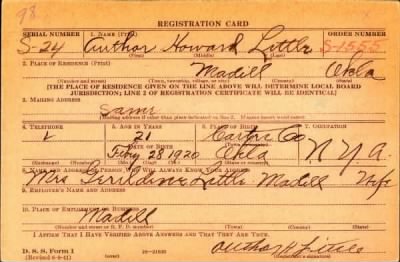 98
REGISTRATION CARD
SERIAL NUMBER 1. NAME (Print) ORDER NUMBER
S-24 Author Howard Little S-1555
2. PLACE OF RESIDENCE (Print)
Madill Okla
(Number and street) (Town, township, village, or city) (County) (State)
[THE PLACE OF RESIDENCE GIVEN ON THE LINE ABOVE WILL DETERMINE LOCAL BOARD
JURISDICTION; LINE 2 OF REGISTRATION CERTIFICATE WILL BE IDENTICAL]
3. MAILING ADDRESS
Same
[Mailing address if other than place indicated on line 2. If same insert word same]
4. TELEPHONE 5. AGE IN YEARS 6. PLACE OF BIRTH 7. OCCUPATION
21 Carter Co
DATE OF BIRTH
Feby 28 1920 Okla N.Y.A.
(Exchange) (Number) (Mo.) (Day) (Yr.) (State or country)
8. NAME AND ADDRESS OF PERSON WHO WILL ALWAYS KNOW YOUR ADDRESS
Mrs Geraldine Little Madill Wife
9. EMPLOYER'S NAME AND ADDRESS
10. PLACE OF EMPLOYMENT OR BUSINESS
Madill
(Number and street or R. F. D. number) (Town) (County) (State)
I AFFIRM THAT I HAVE VERIFIED ABOVE ANSWERS AND THAT THEY ARE TRUE.
D. S. S. Form 1
(Revised 6-9-41) Author H Little
(Registrant's signature)